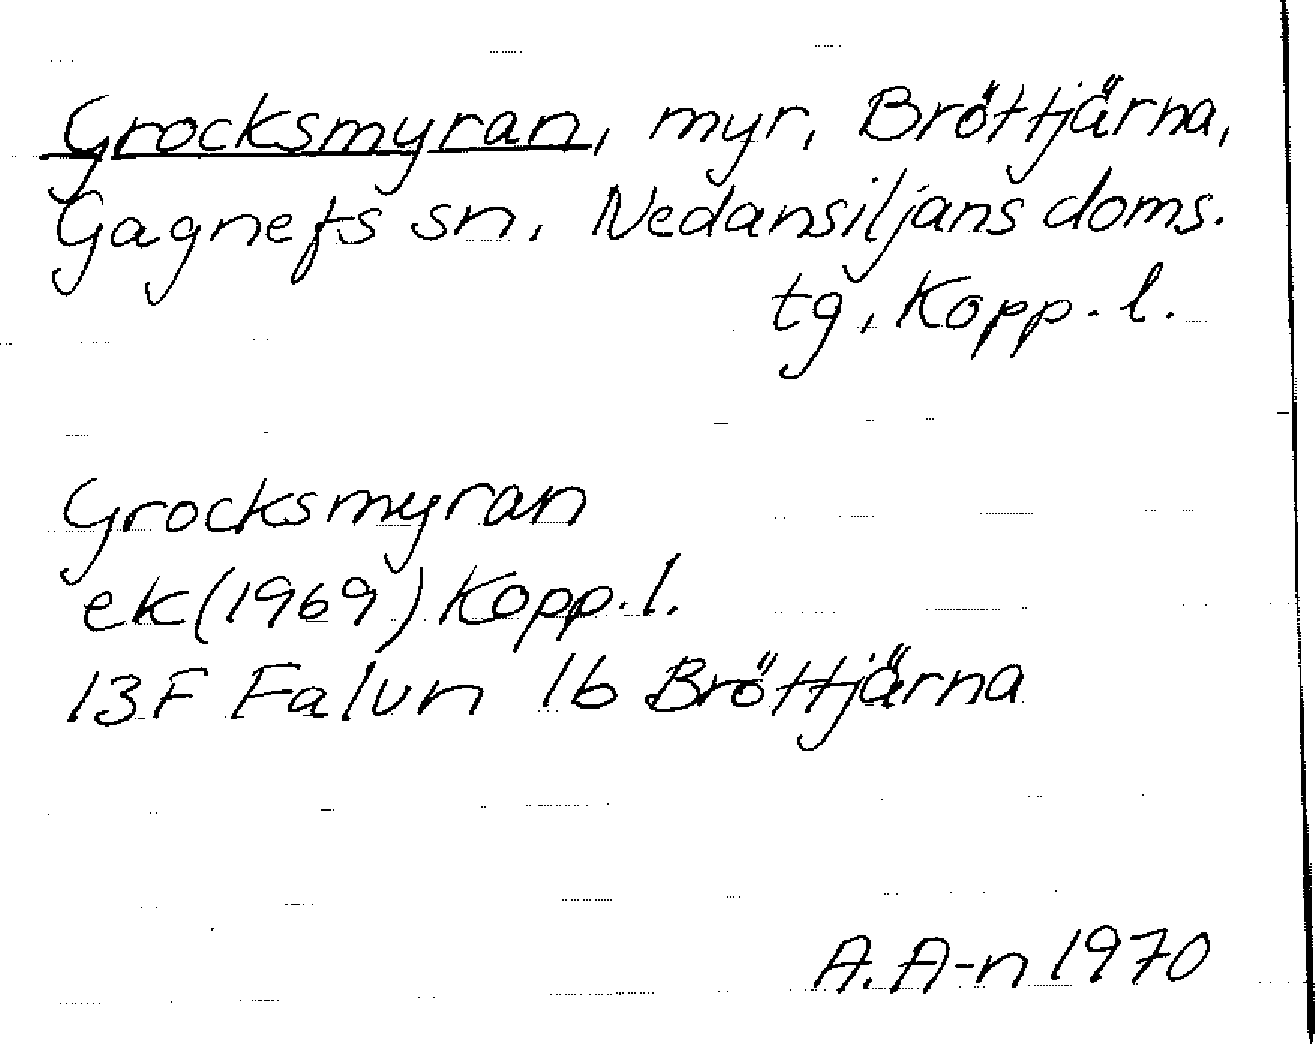 Grocksmyran, myr, Bröttjärna,
Gagnefs sn, Nedansiljans doms.
tg, Kopp. l.
Grocksmyran
ek(1969) Kopp. l.
13F Falun 1b Bröttjärna
A. A-n 1970